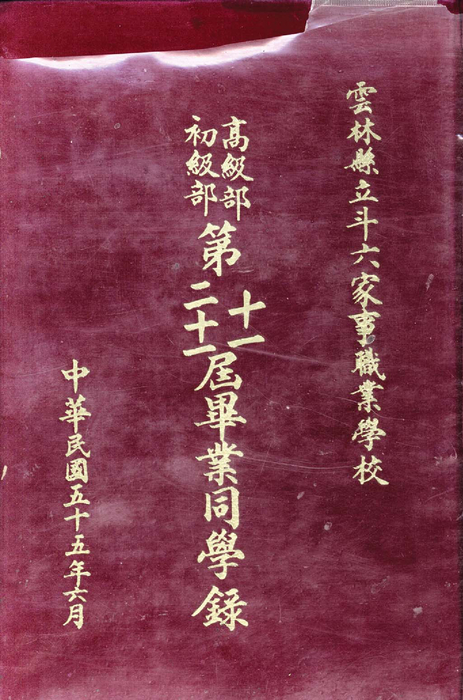 雲林縣立斗六家事職業學校
高級部
初級部
第
十一
二十一
屆畢業同學錄
中華民國五十五年六月